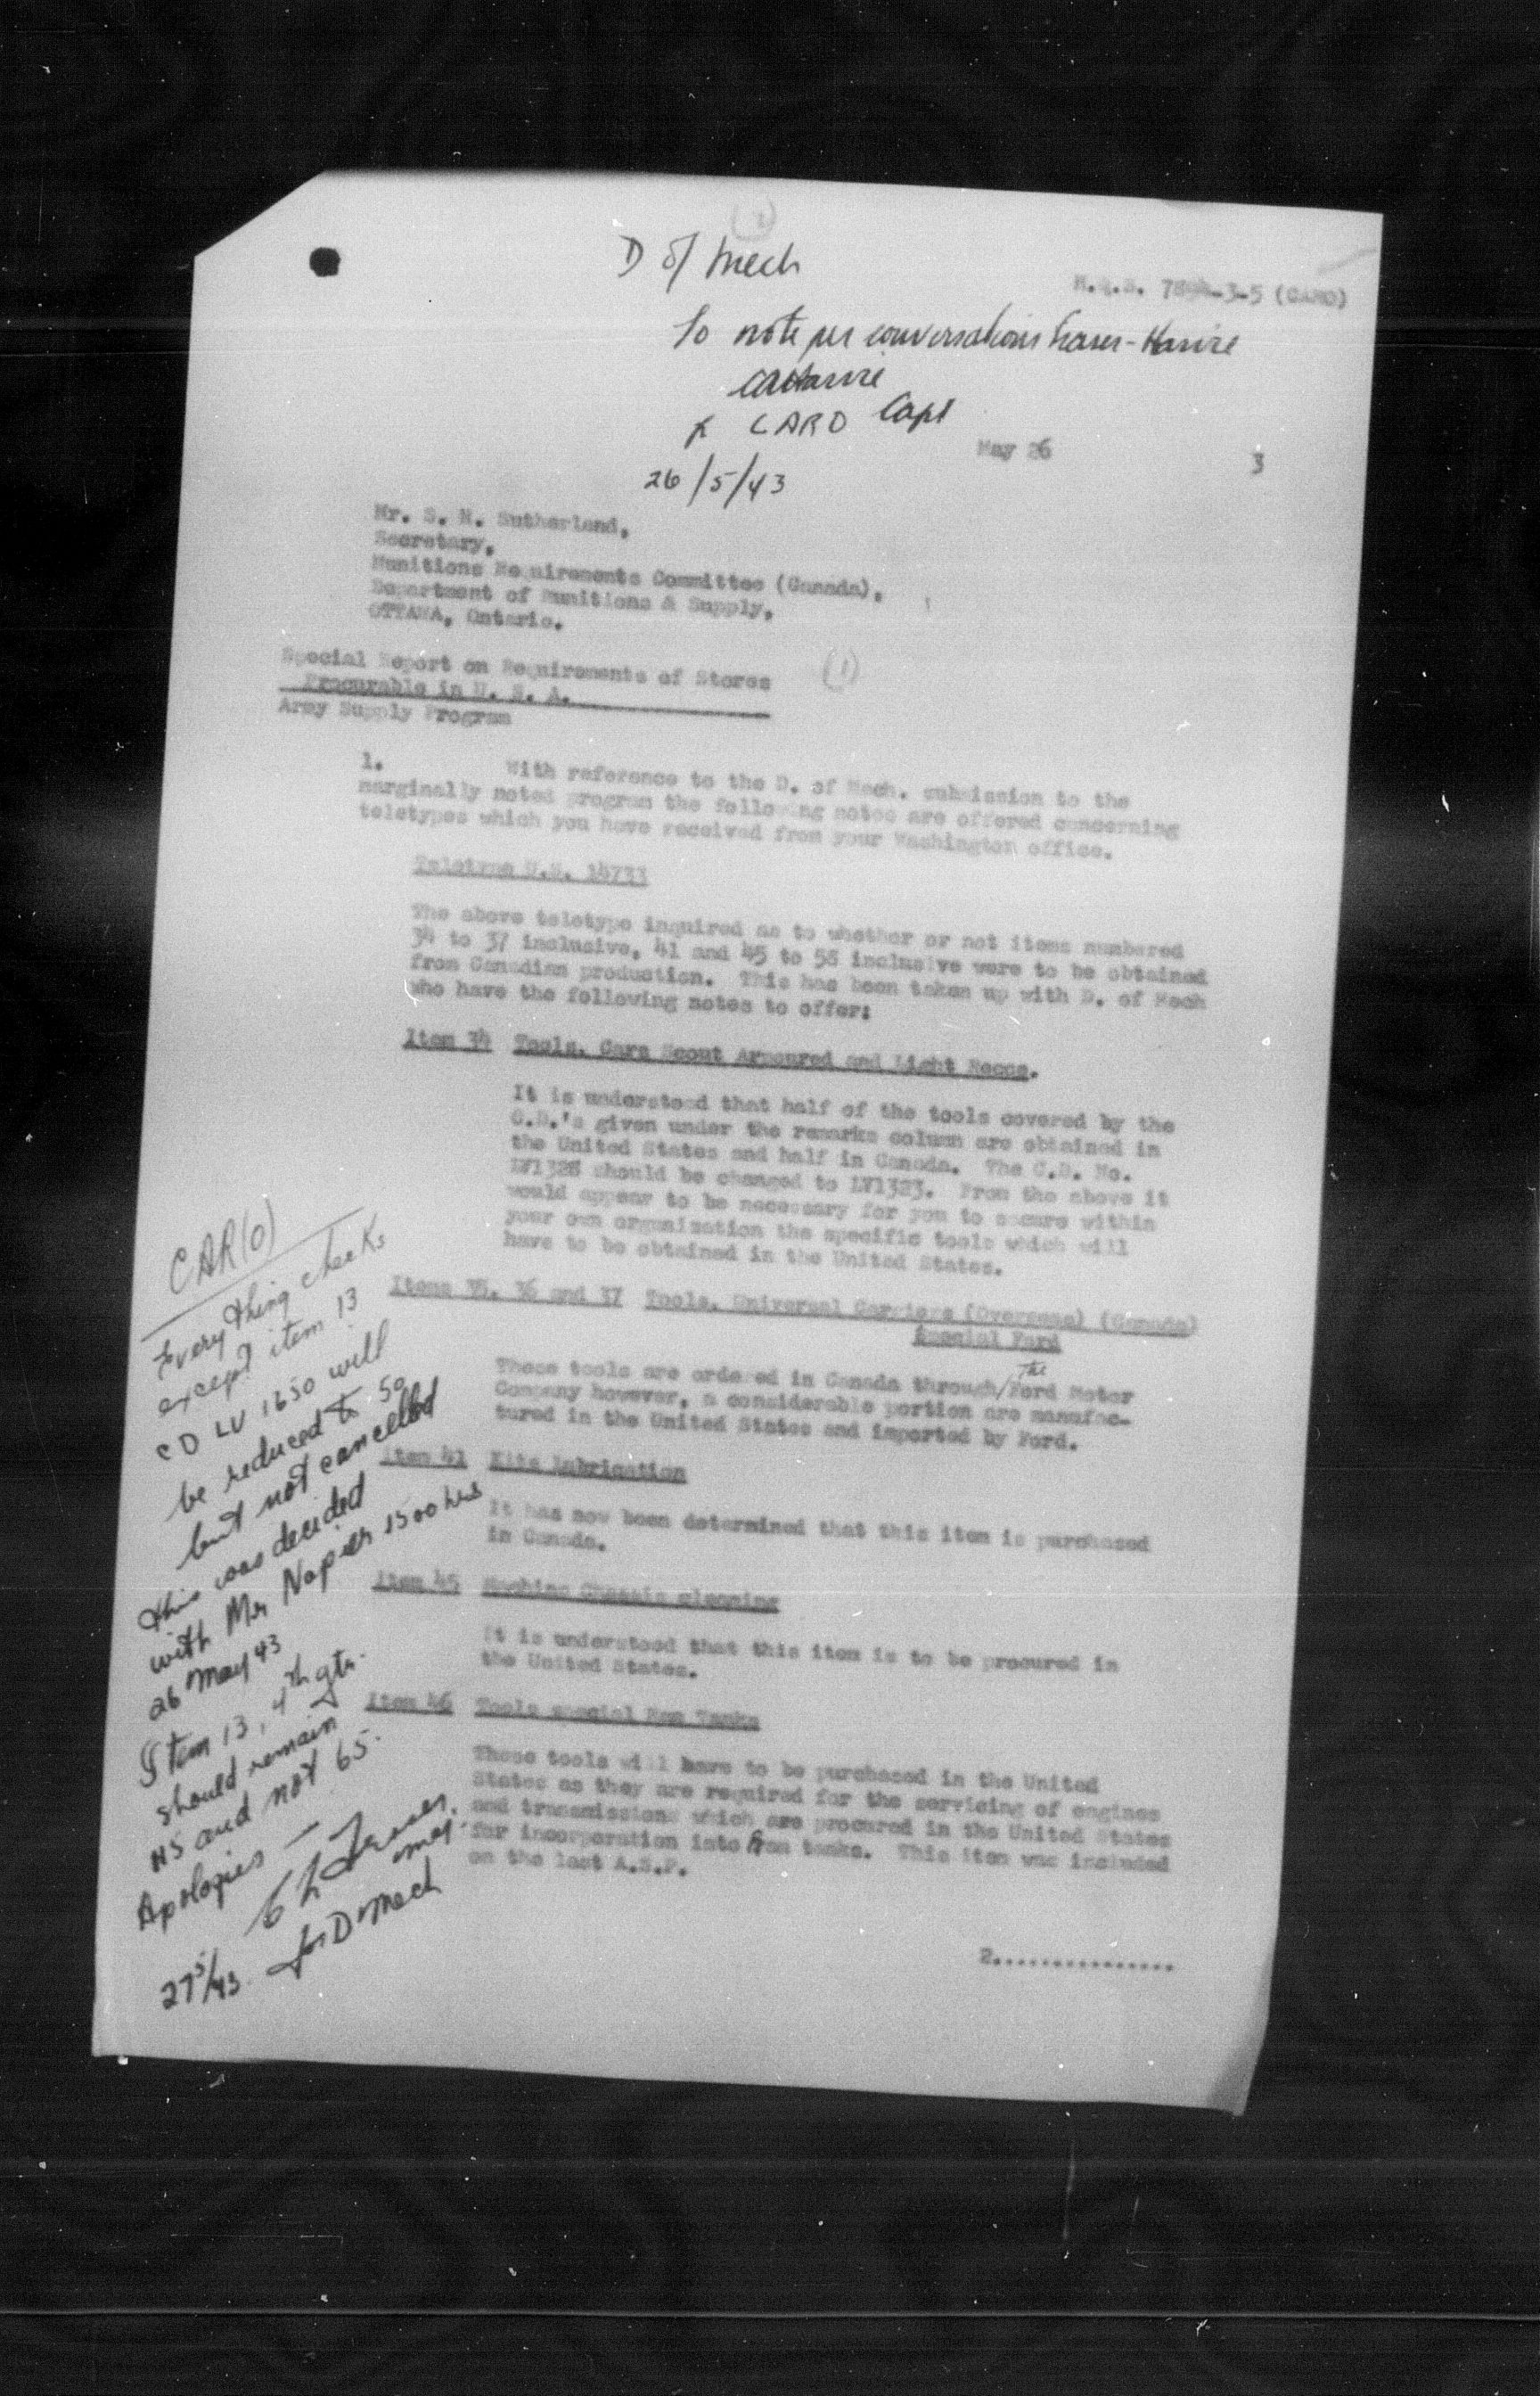 (1)
D of Mech
H.Q.S. 7894-3-5 (CARO)
To note per conversations Fraser-
CARO Capt
May 26 3
26/5/43
Mr. S. N. Sutherland,
Secretary,
Munitions Requirements Committee (Canada),
Department of Munitions & Supply,
OTTAWA, Ontario.
Special Report on Requirements of Stores
Procurable in U. S. A.
(1)
Army Supply Program
1. With reference to the D. of Mech. submission to the
marginally noted program the following notes are offered concerning
teletypes which you have received from your Washington office.
Teletype 14733
The above teletype inquired as to whether or not items numbered
34 to 37 inclusive, 41 and 45 to 56 inclusive were to be obtained
from Canadian production. This has been taken up with D. of Mech
who have the following notes to offer:
Item 34 Tools, Cars Scout Armoured and Light Recce.
It is understood that half of the tools covered by the
C.D.'s given under the remarks column are obtained in
the United States and half in Canada. The C.D. No.
LV1328 should be changed to LV1323. From the above it
would appear to be necessary for you to secure within
your own organization the specific tools which will
have to be obtained in the United States.
Items 35, 36 and 37 Tools, Universal Carriers (Overseas) (Canada)
Special Ford
These tools are ordered in Canada through/the Ford Motor
Company however, a considerable portion are manufac-
tured in the United States and imported by Ford.
Item 41 Kits Lubrication
It has now been determined that this item is purchased
in Canada.
Item 45 Machine Chassis cleaning
It is understood that this item is to be procured in
the United States.
Item 46 Tools special Ram Tanks
These tools will have to be purchased in the United
States as they are required for the servicing of engines
and transmissions which are procured in the United States
for incorporation into Ram tanks. This item was included
on the last A.S.P.
2................
CAR(O)
Everything checks
except item 13
CD LV 1650 will
be reduced to 50
but not cancelled
this was decided
with Mr Napier 1500 hrs
26 May 43
Item 13, 4th qtr.
should remain
45 and not 65.
Apologies —
Fraser
maj.
for D of Mech
27/5/43